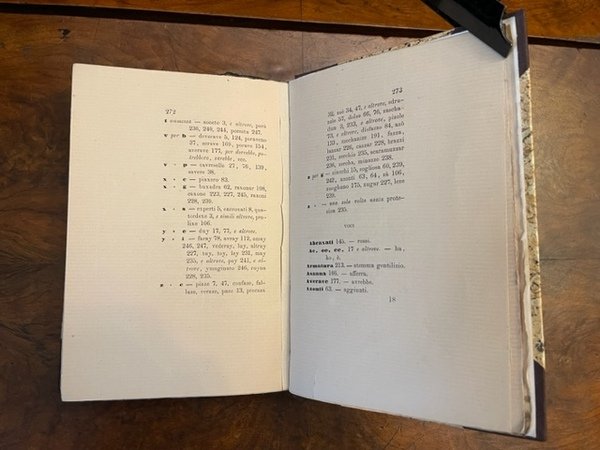 272
t — aoceto 3, e altrove, pera
236, 240, 244, pometa 247.
v per b — deverave 5, 124,
37, serave 169, porave 154,
averave 177, per dovrebbe, po-
trebbero, avrebbe, ecc.
v - p — cavernello 27, 76, 139,
savere 38.
x - c — piaxero 83.
x - g — baxadra 62, raxonar 198,
caxone 223, 227, 245, raxom
228, 239.
x - s — experti 5, caoroxati 8, qua-
tordexe 3, e simili altrove, pru-
lixo 106.
y - e — duy 17, 77, e altrove.
y - i — faray 78, array 112, aray
246, 247, vederay, lay, altray
227, tuy, toy, ley 231, may
235, e altrove, poy 241, e al-
trove, ymaginato 246, royna
228, 235.
z - c — piaze 7, 47, confaze, fal-
laze, veraze, paze 13, procaza
273
32, zoè 34, 47, e altrove, zdru-
zolo 57, dolzo 66, 76, zascha-
dun 9, 233, e altrove, pizole
73, e altrove, disfazse 84, azò
159, mechanize 191, fazza,
lanzar 226, calzar 228, brazzi
231, zerchio 235, scaramuzar
236, zercha, manazo 238.
z per g — ciserchi 15, rogliosa 60, 239,
242, zonti 63, 64, zà 106,
zorghano 175, zugar 227, leze
239.
una sole volta senza prote-
sion 235.
VOCI
Abraxati 145. — rossi.
Ae, oe, ee, 17 e altrove. — ha,
ho, è.
Armatura 213. — stemma gentilizio.
Asanna 106. — afferra.
Averave 177. — avrebbe.
Axonti 63. — aggiunti.
18